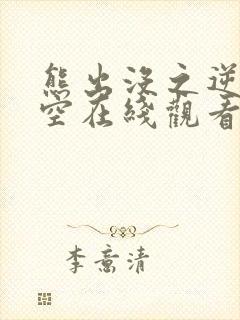 熊出没之逆
空在綫觀看
李意清